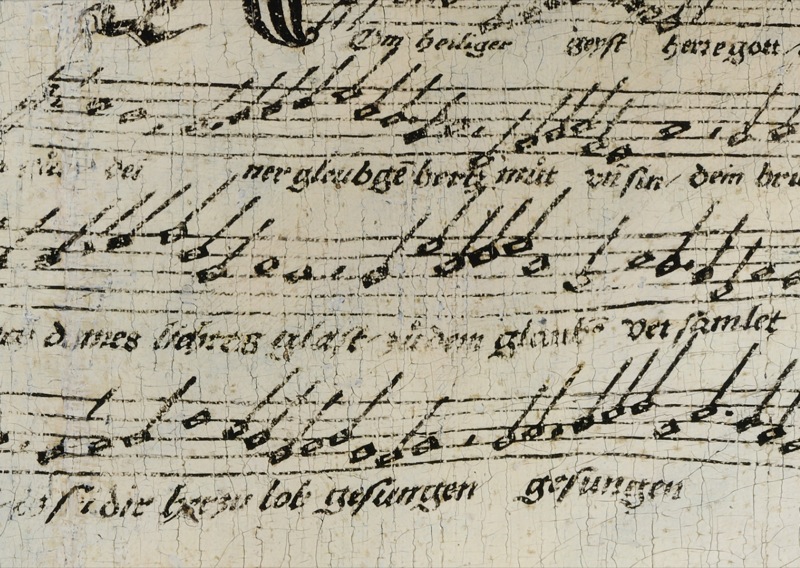 Om heiliger geyst herregott
dei ner gleubgē hertz můt vn̄ sin dem bru
deines liehtes glast zů dem glaubē versamlet
dir herzu lob gesungen gesungen